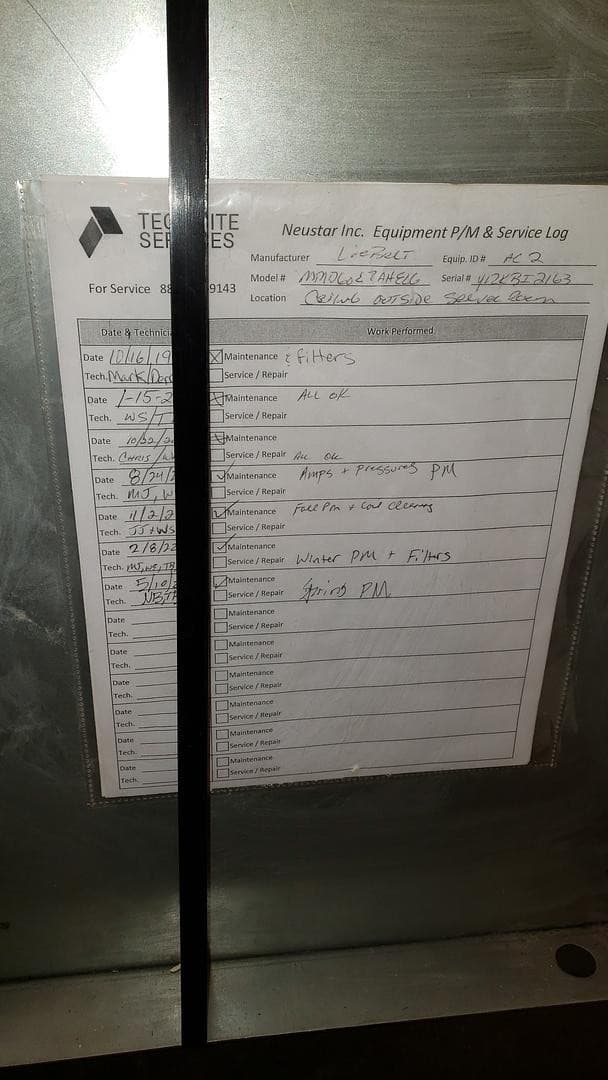 TEC ITE
SER ES
Neustar Inc. Equipment P/M & Service Log
Manufacturer LieBert Equip. ID # AC 2
For Service 88 9143
Model # Serial #
Location Ceiling outside server room
Date & Technici Work Performed
Date 10/16/19 Maintenance & filters
Tech. Mark/ Service / Repair
Date 1-15-2 Maintenance ALL OK
Tech. WS/T Service / Repair
Date 10/22/2 Maintenance
Tech. CHRIS / Service / Repair ALL OK
Date 8/24/2 Maintenance Amps + Pressures PM
Tech. MJ, W Service / Repair
Date 11/2/2 Maintenance Fall PM + Coil Cleaning
Tech. JJ + WS Service / Repair
Date 2/8/22 Maintenance
Tech. MJ, WS, TA Service / Repair Winter PM + Filters
Date 5/10/2 Maintenance
Tech. NB, TA Service / Repair Spring PM
Date Maintenance
Tech. Service / Repair
Date Maintenance
Tech. Service / Repair
Date Maintenance
Tech. Service / Repair
Date Maintenance
Tech. Service / Repair
Date Maintenance
Tech. Service / Repair
Date Maintenance
Tech. Service / Repair